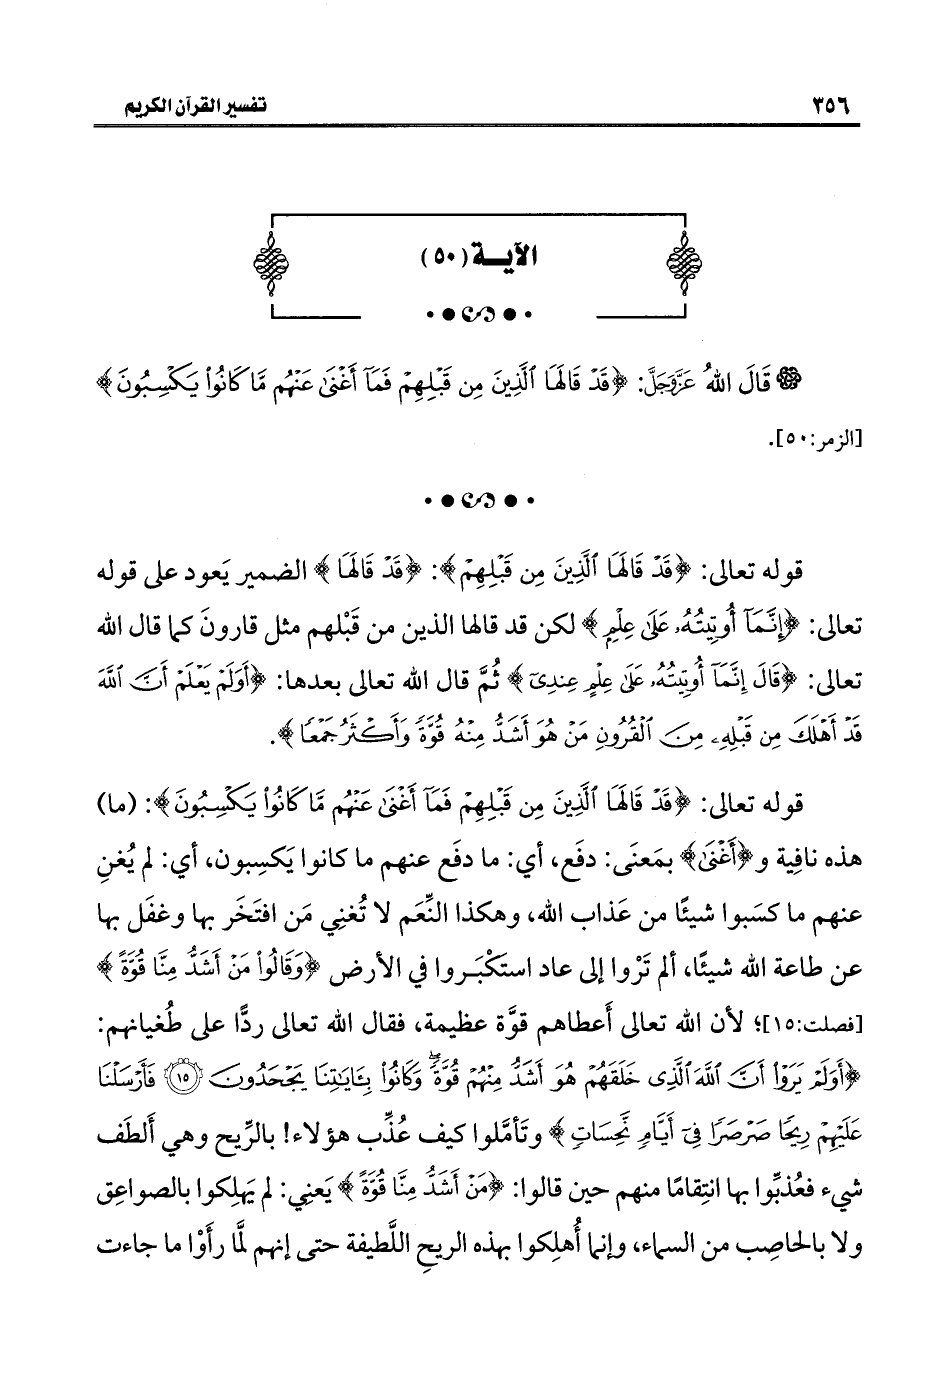 ٣٥٦ تفسير القرآن الكريم
الآيـــة (٥٠)
قَالَ اللهُ عَزَّوَجَلَّ: ﴿قَدۡ قَالَهَا ٱلَّذِينَ مِن قَبۡلِهِمۡ فَمَآ أَغۡنَىٰ عَنۡهُم مَّا كَانُواْ يَكۡسِبُونَ﴾
[الزمر:٥٠].
قوله تعالى: ﴿قَدۡ قَالَهَا ٱلَّذِينَ مِن قَبۡلِهِمۡ﴾: ﴿قَدۡ قَالَهَا﴾ الضمير يَعود على قوله
تعالى: ﴿إِنَّمَآ أُوتِيتُهُۥ عَلَىٰ عِلۡمٍ﴾ لكن قد قالها الذين من قَبْلهم مثل قارونَ كما قال الله
تعالى: ﴿قَالَ إِنَّمَآ أُوتِيتُهُۥ عَلَىٰ عِلۡمٍ عِندِيٓ﴾ ثُمَّ قال الله تعالى بعدها: ﴿أَوَلَمۡ يَعۡلَمۡ أَنَّ ٱللَّهَ
قَدۡ أَهۡلَكَ مِن قَبۡلِهِۦ مِنَ ٱلۡقُرُونِ مَنۡ هُوَ أَشَدُّ مِنۡهُ قُوَّةٗ وَأَكۡثَرُ جَمۡعٗا﴾.
قوله تعالى: ﴿قَدۡ قَالَهَا ٱلَّذِينَ مِن قَبۡلِهِمۡ فَمَآ أَغۡنَىٰ عَنۡهُم مَّا كَانُواْ يَكۡسِبُونَ﴾: (ما)
هذه نافِية و﴿أَغۡنَىٰ﴾ بمَعنَى: دفَع، أي: ما دفَع عنهم ما كانوا يَكسِبون، أي: لم يُغنِ
عنهم ما كسَبوا شيئًا من عَذاب الله، وهكذا النِّعَم لا تُغنِي مَن افتَخَر بها وغفَل بها
عن طاعة الله شيئًا، ألم تَرْوا إلى عاد استَكْبَروا في الأرض ﴿وَقَالُواْ مَنۡ أَشَدُّ مِنَّا قُوَّةً﴾
[فصلت:١٥]؛ لأن الله تعالى أَعطاهم قوَّة عظيمة، فقال الله تعالى ردًّا على طُغيانهم:
﴿أَوَلَمۡ يَرَوۡاْ أَنَّ ٱللَّهَ ٱلَّذِي خَلَقَهُمۡ هُوَ أَشَدُّ مِنۡهُمۡ قُوَّةٗۖ وَكَانُواْ بِـَٔايَٰتِنَا يَجۡحَدُونَ ١٥ فَأَرۡسَلۡنَا
عَلَيۡهِمۡ رِيحٗا صَرۡصَرٗا فِيٓ أَيَّامٖ نَّحِسَاتٖ﴾ وتَأمَّلوا كيف عُذِّب هؤلاء! بالرِّيح وهي أَلطَف
شيء فعُذبِّوا بها انتِقامًا منهم حين قالوا: ﴿مَنۡ أَشَدُّ مِنَّا قُوَّةً﴾ يَعنِي: لم يَهلِكوا بالصواعِق
ولا بالحاصِب من السماء، وإنما أُهلِكوا بهذه الريحِ اللَّطيفة حتى إنهم لمَّا رأَوْا ما جاءت